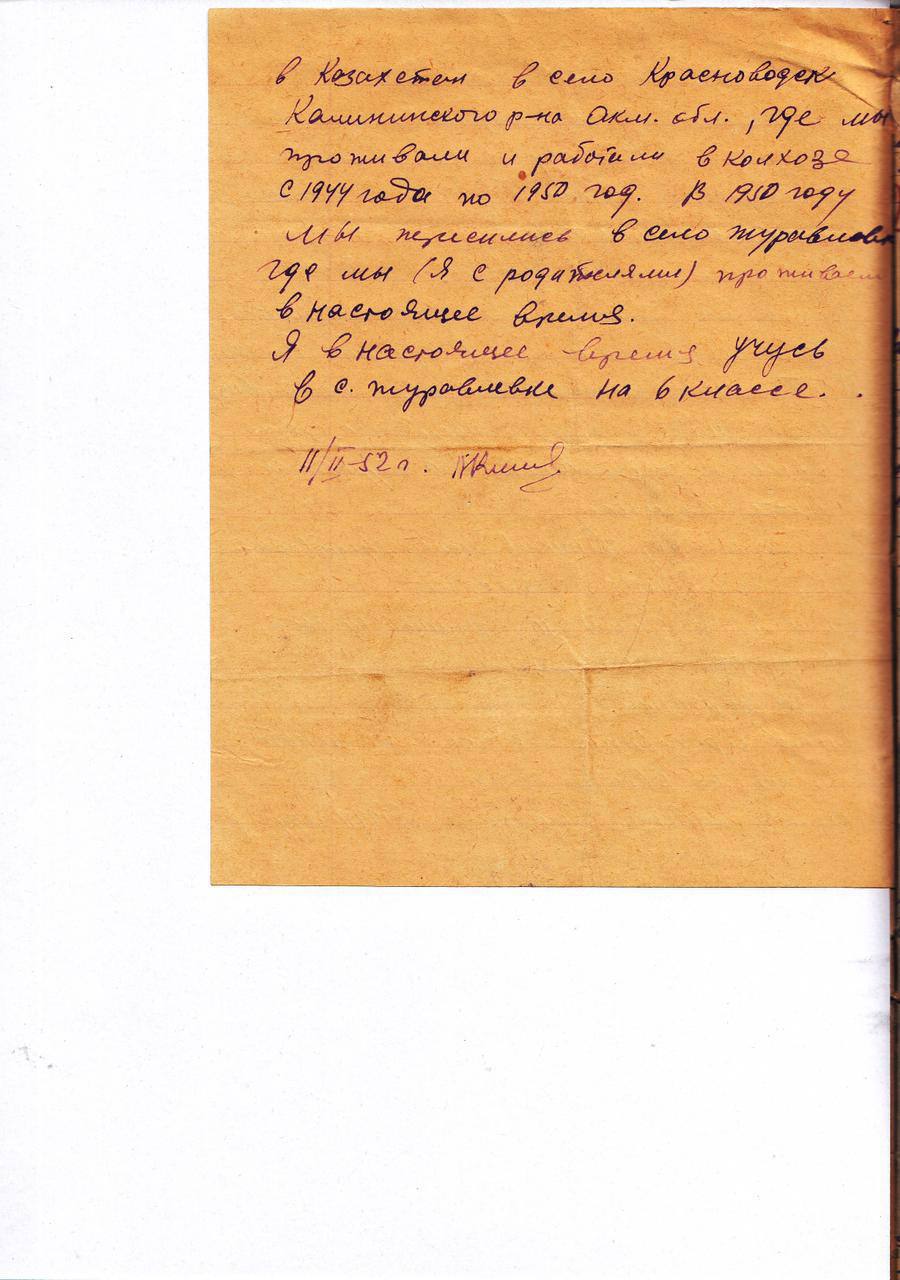 в Казахстан в село Красноводск
Калининского р-на Акм. обл., где мы
проживали и работали в колхозе
с 1944 года по 1950 год. В 1950 году
мы переселись в село Журавлевк
где мы (Я с родителями) проживаем
в настоящее время.
Я в настоящее время учусь
в с. Журавлевке на 6 классе.
11/II-52 г.